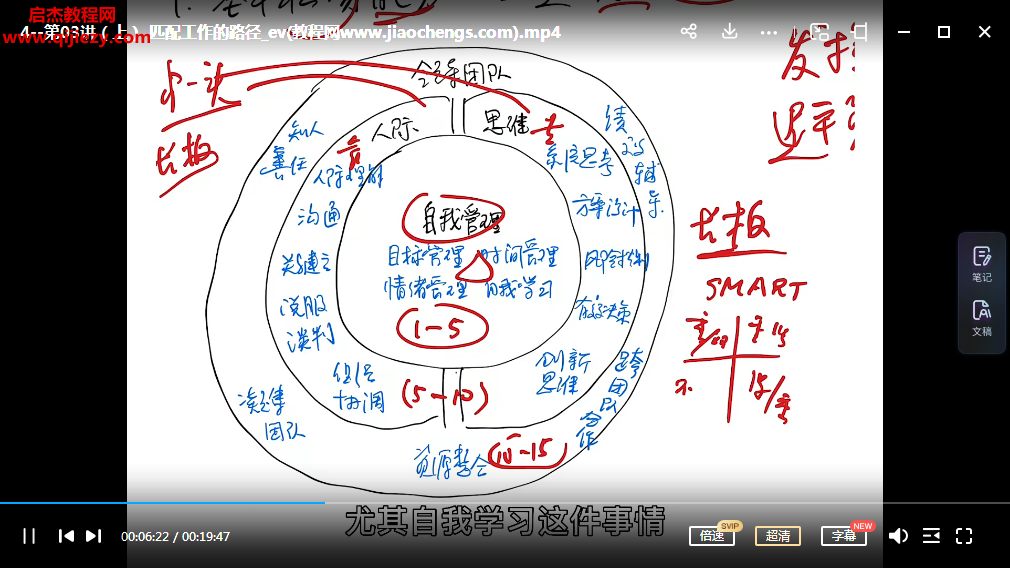 启杰教程网
www.qijiezy.com
4--第03讲（上） 匹配工作的路径_ev(教程网www.jiaochengs.com).mp4
全字团队
人际
思维
知人
善任
人际理解
沟通
关系建立
说服
谈判
组织
协调
凝集
团队
资源整合
自我管理
目标管理 时间管理
情绪管理 自我学习
1-5
(5-10)
10-15
系统思考
方案设计
有效决策
创新
思维
绩
效
辅
导
跨
团
队
合
作
长板
长板
SMART
笔记
文稿
尤其自我学习这件事情
00:06:22 / 00:19:47
倍速
SVIP
超清
字幕
NEW